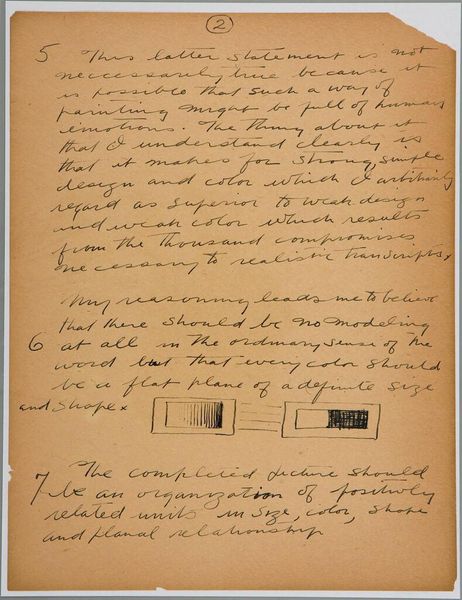 2
5 This latter statement is not
neccessarily true because it
is possible that such a way of
painting might be full of human
emotions. The thing about it
that I understand clearly is
that it makes for strong, simple
design and color which I arbitrarily
regard as superior to weak design
and weak color which results
from the thousand compromises
necessary to realistic transcripts x
My reasoning leads me to believe
that there should be no modeling
6 at all in the ordinary sense of the
word but that every color should
be a flat plane of a definite size
and shape x
7 The completed picture should
be an organization of positively
related units in size, color, shape
and planal relationship